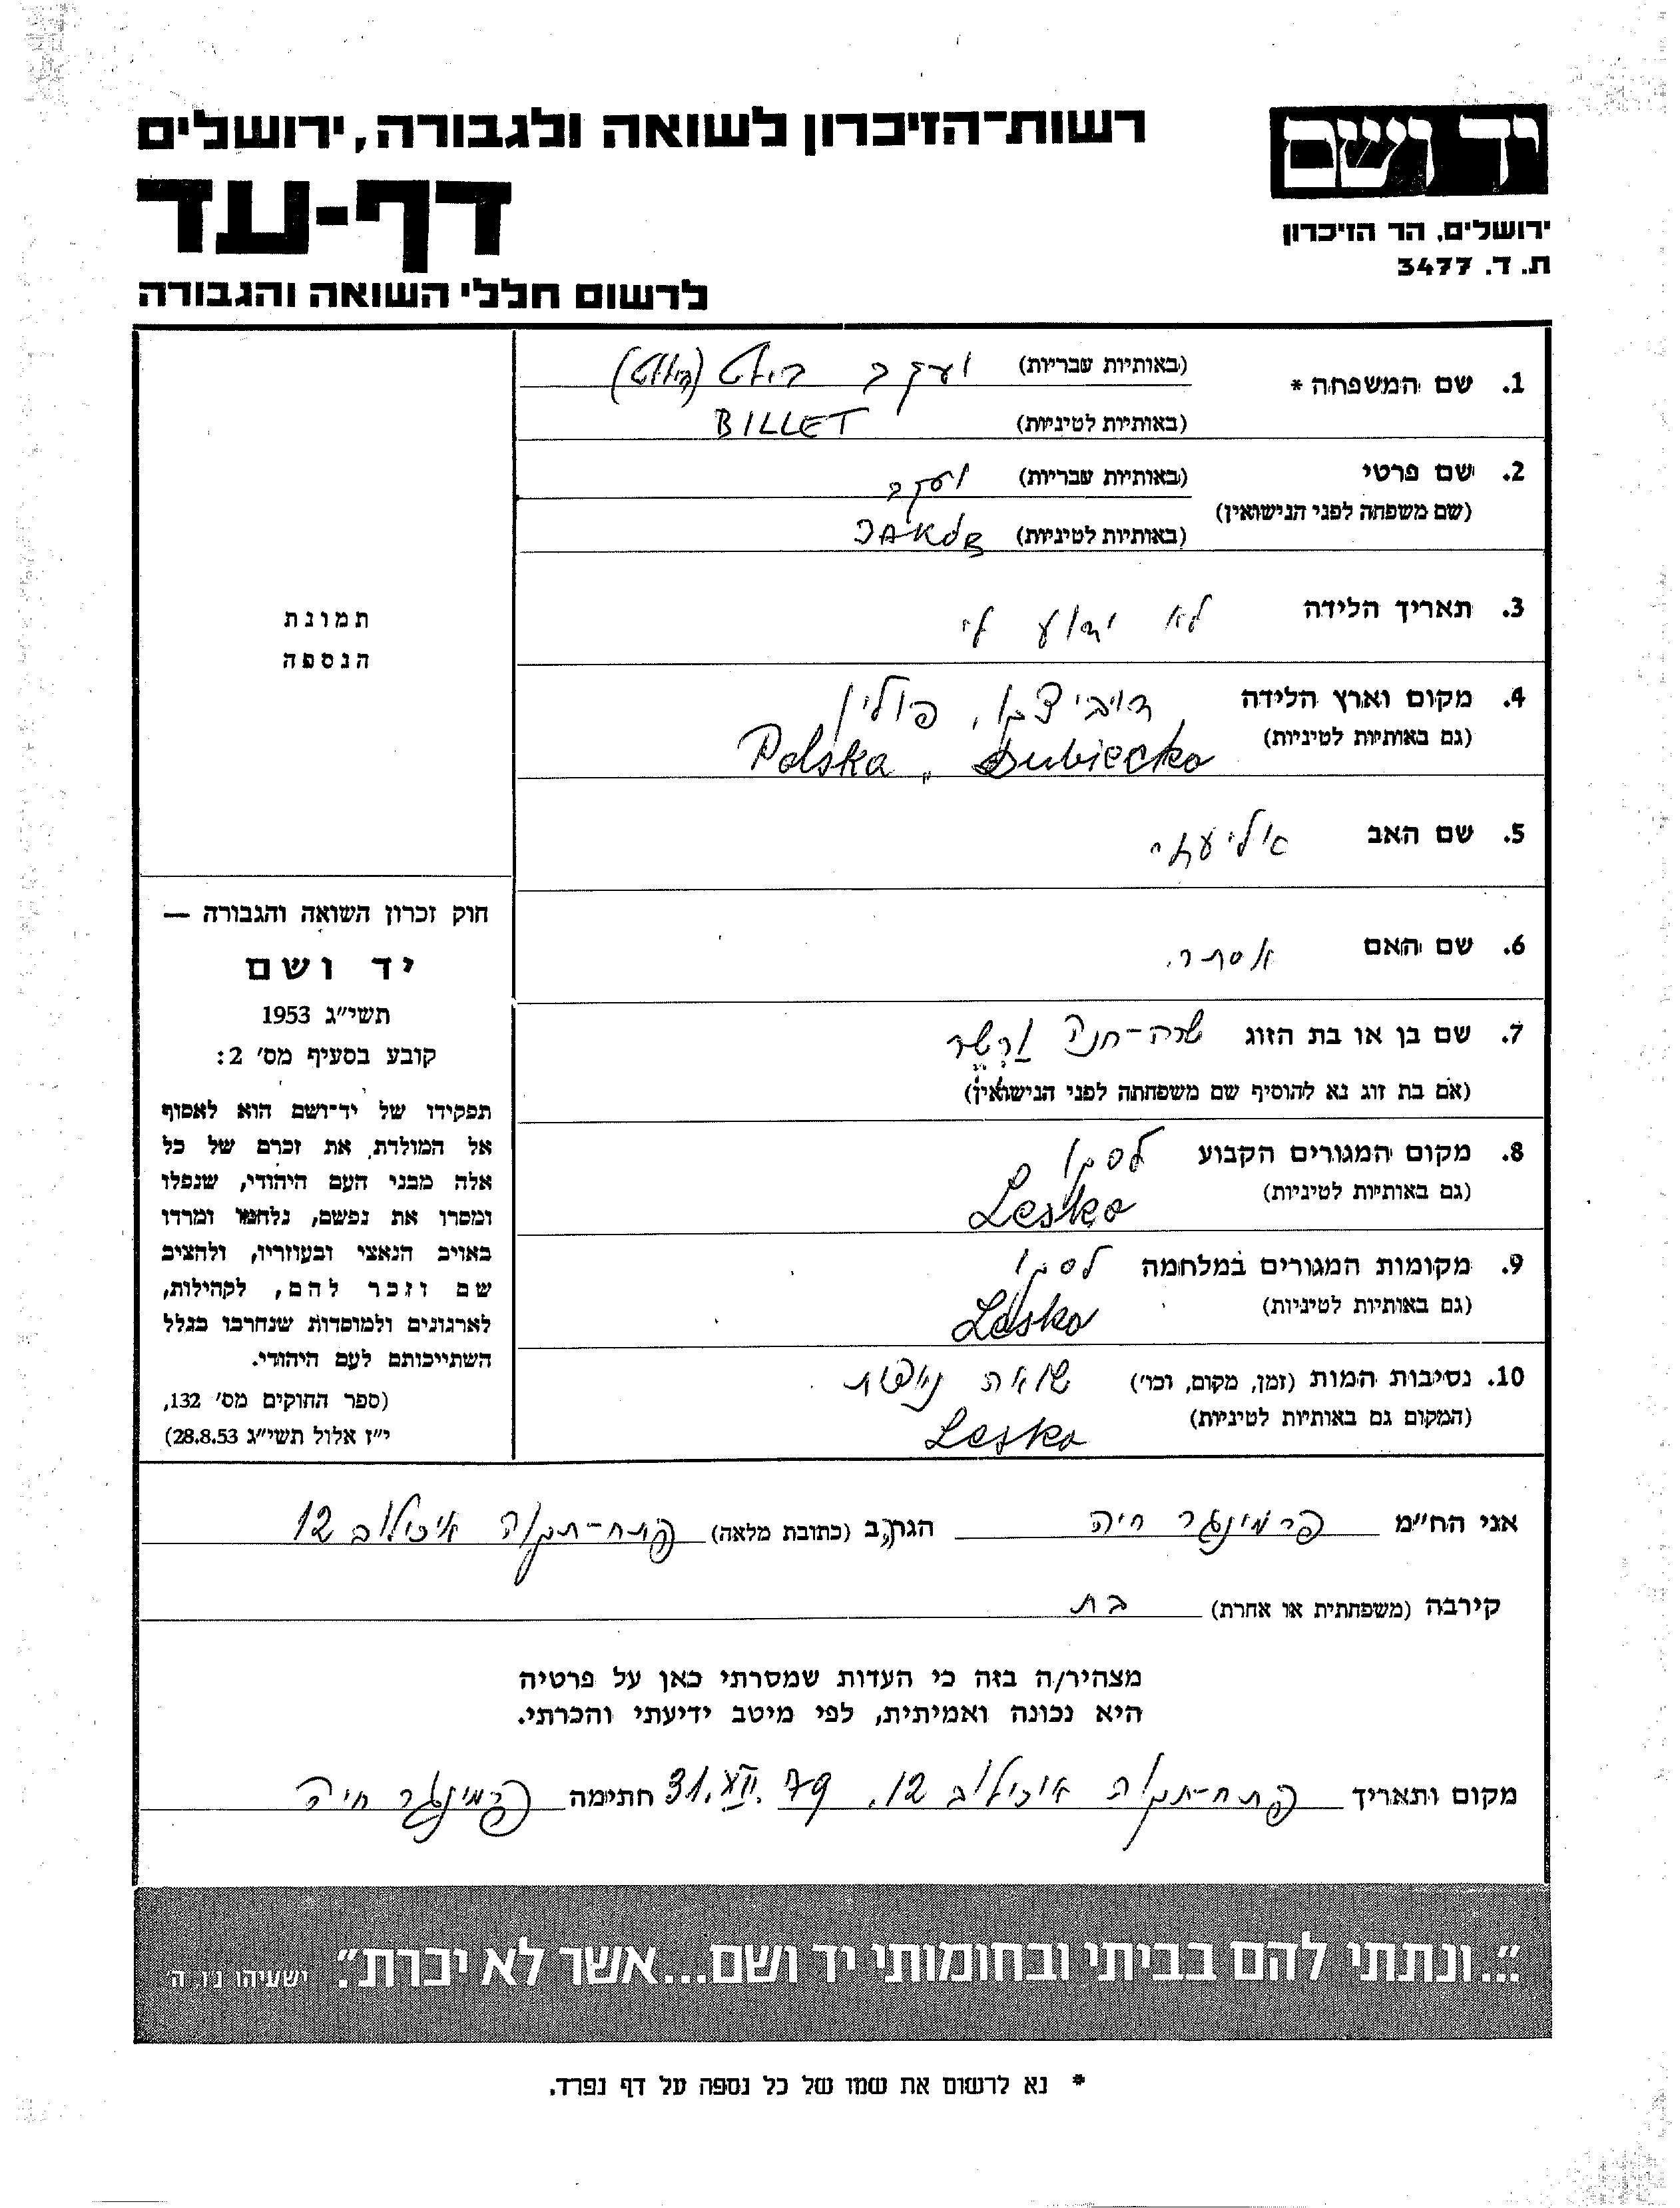 יד ושם
ירושלים, הר הזיכרון
ת. ד. 3477
רשות-הזיכרון לשואה ולגבורה, ירושלים
דף-עד
לרשום חללי השואה והגבורה
1. שם המשפחה * (באותיות עבריות) יעקב בילט (בילט)
(באותיות לטיניות) BILLET
2. שם פרטי (באותיות עבריות) יעקב
(שם משפחה לפני הנישואין)
(באותיות לטיניות) JAKOB
3. תאריך הלידה לא ידוע לי
4. מקום וארץ הלידה דוביצקו, פולין
(גם באותיות לטיניות) Polska, Dubiecko
5. שם האב אליעזר
6. שם האם אסתר.
7. שם בן או בת הזוג שרה-חנה
(אם בת זוג נא להוסיף שם משפחתה לפני הנישואין)
8. מקום המגורים הקבוע לסקו
(גם באותיות לטיניות) Lesko
9. מקומות המגורים במלחמה לסקו
(גם באותיות לטיניות) Lesko
10. נסיבות המות (זמן, מקום, וכו') שואת
(המקום גם באותיות לטיניות) Lesko
תמונת
הנספה
חוק זכרון השואה והגבורה —
יד ושם
תשי״ג 1953
קובע בסעיף מס׳ 2:
תפקידו של יד־ושם הוא לאסוף
אל המולדת את זכרם של כל
אלה מבני העם היהודי, שנפלו
ומסרו את נפשם, נלחמו ומרדו
באויב הנאצי ובעוזריו, ולהציב
שם וזכר להם, לקהילות,
לארגונים ולמוסדות שנחרבו בגלל
השתייכותם לעם היהודי.
(ספר החוקים מס׳ 132,
י״ז אלול תשי״ג 28.8.53)
אני הח״מ פרמינגר חיה הגר/ב (כתובת מלאה) פתח-תקוה 12
קירבה (משפחתית או אחרת) בת
מצהיר/ה בזה כי העדות שמסרתי כאן על פרטיה
היא נכונה ואמיתית, לפי מיטב ידיעתי והכרתי.
מקום ותאריך פתח-תקוה 12. 31.XII.79 חתימה פרמינגר חיה
״...ונתתי להם בביתי ובחומותי יד ושם...אשר לא יכרת״. ישעיהו נו, ה
* נא לרשום את שמו של כל נספה על דף נפרד.